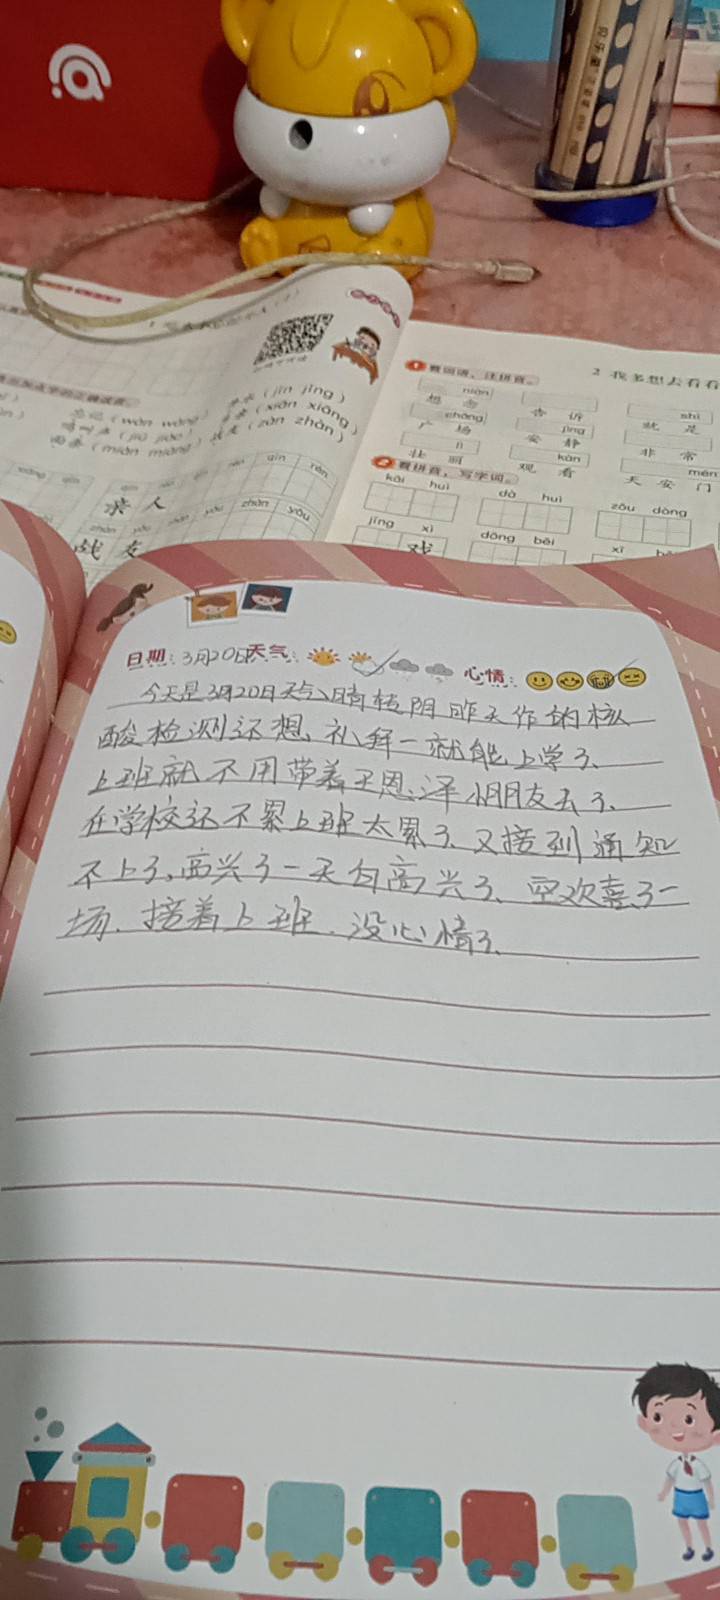 2 我多想去看看
1 看词语，注拼音。
niàn
想 念
告 诉
shì
就 是
chǎng
广 场
jìng
安 静
非 常
lì
壮 丽
kàn
观 看
mén
天 安 门
2 看拼音，写字词。
kāi huì
dà huì
zǒu dòng
jīng xì
戏
dōng běi
xī
(jīn jīng)
(wàn wàng)
(xiān xiāng)
(jiū jiāo)
(zàn zhàn)
(miàn miàng)
qīn rén
亲 人
zhàn yǒu
战 友
日期：3月20日 天气： 心情：
今天是3月20日天气：晴转阴昨天作的核
酸检测还想、礼拜一就能上学了、
上班就不用带着王恩泽小朋友去了、
在学校还不累上班太累了、又接到通知
不上了，高兴了一天白高兴了、空欢喜了一
场、接着上班、没心情了、